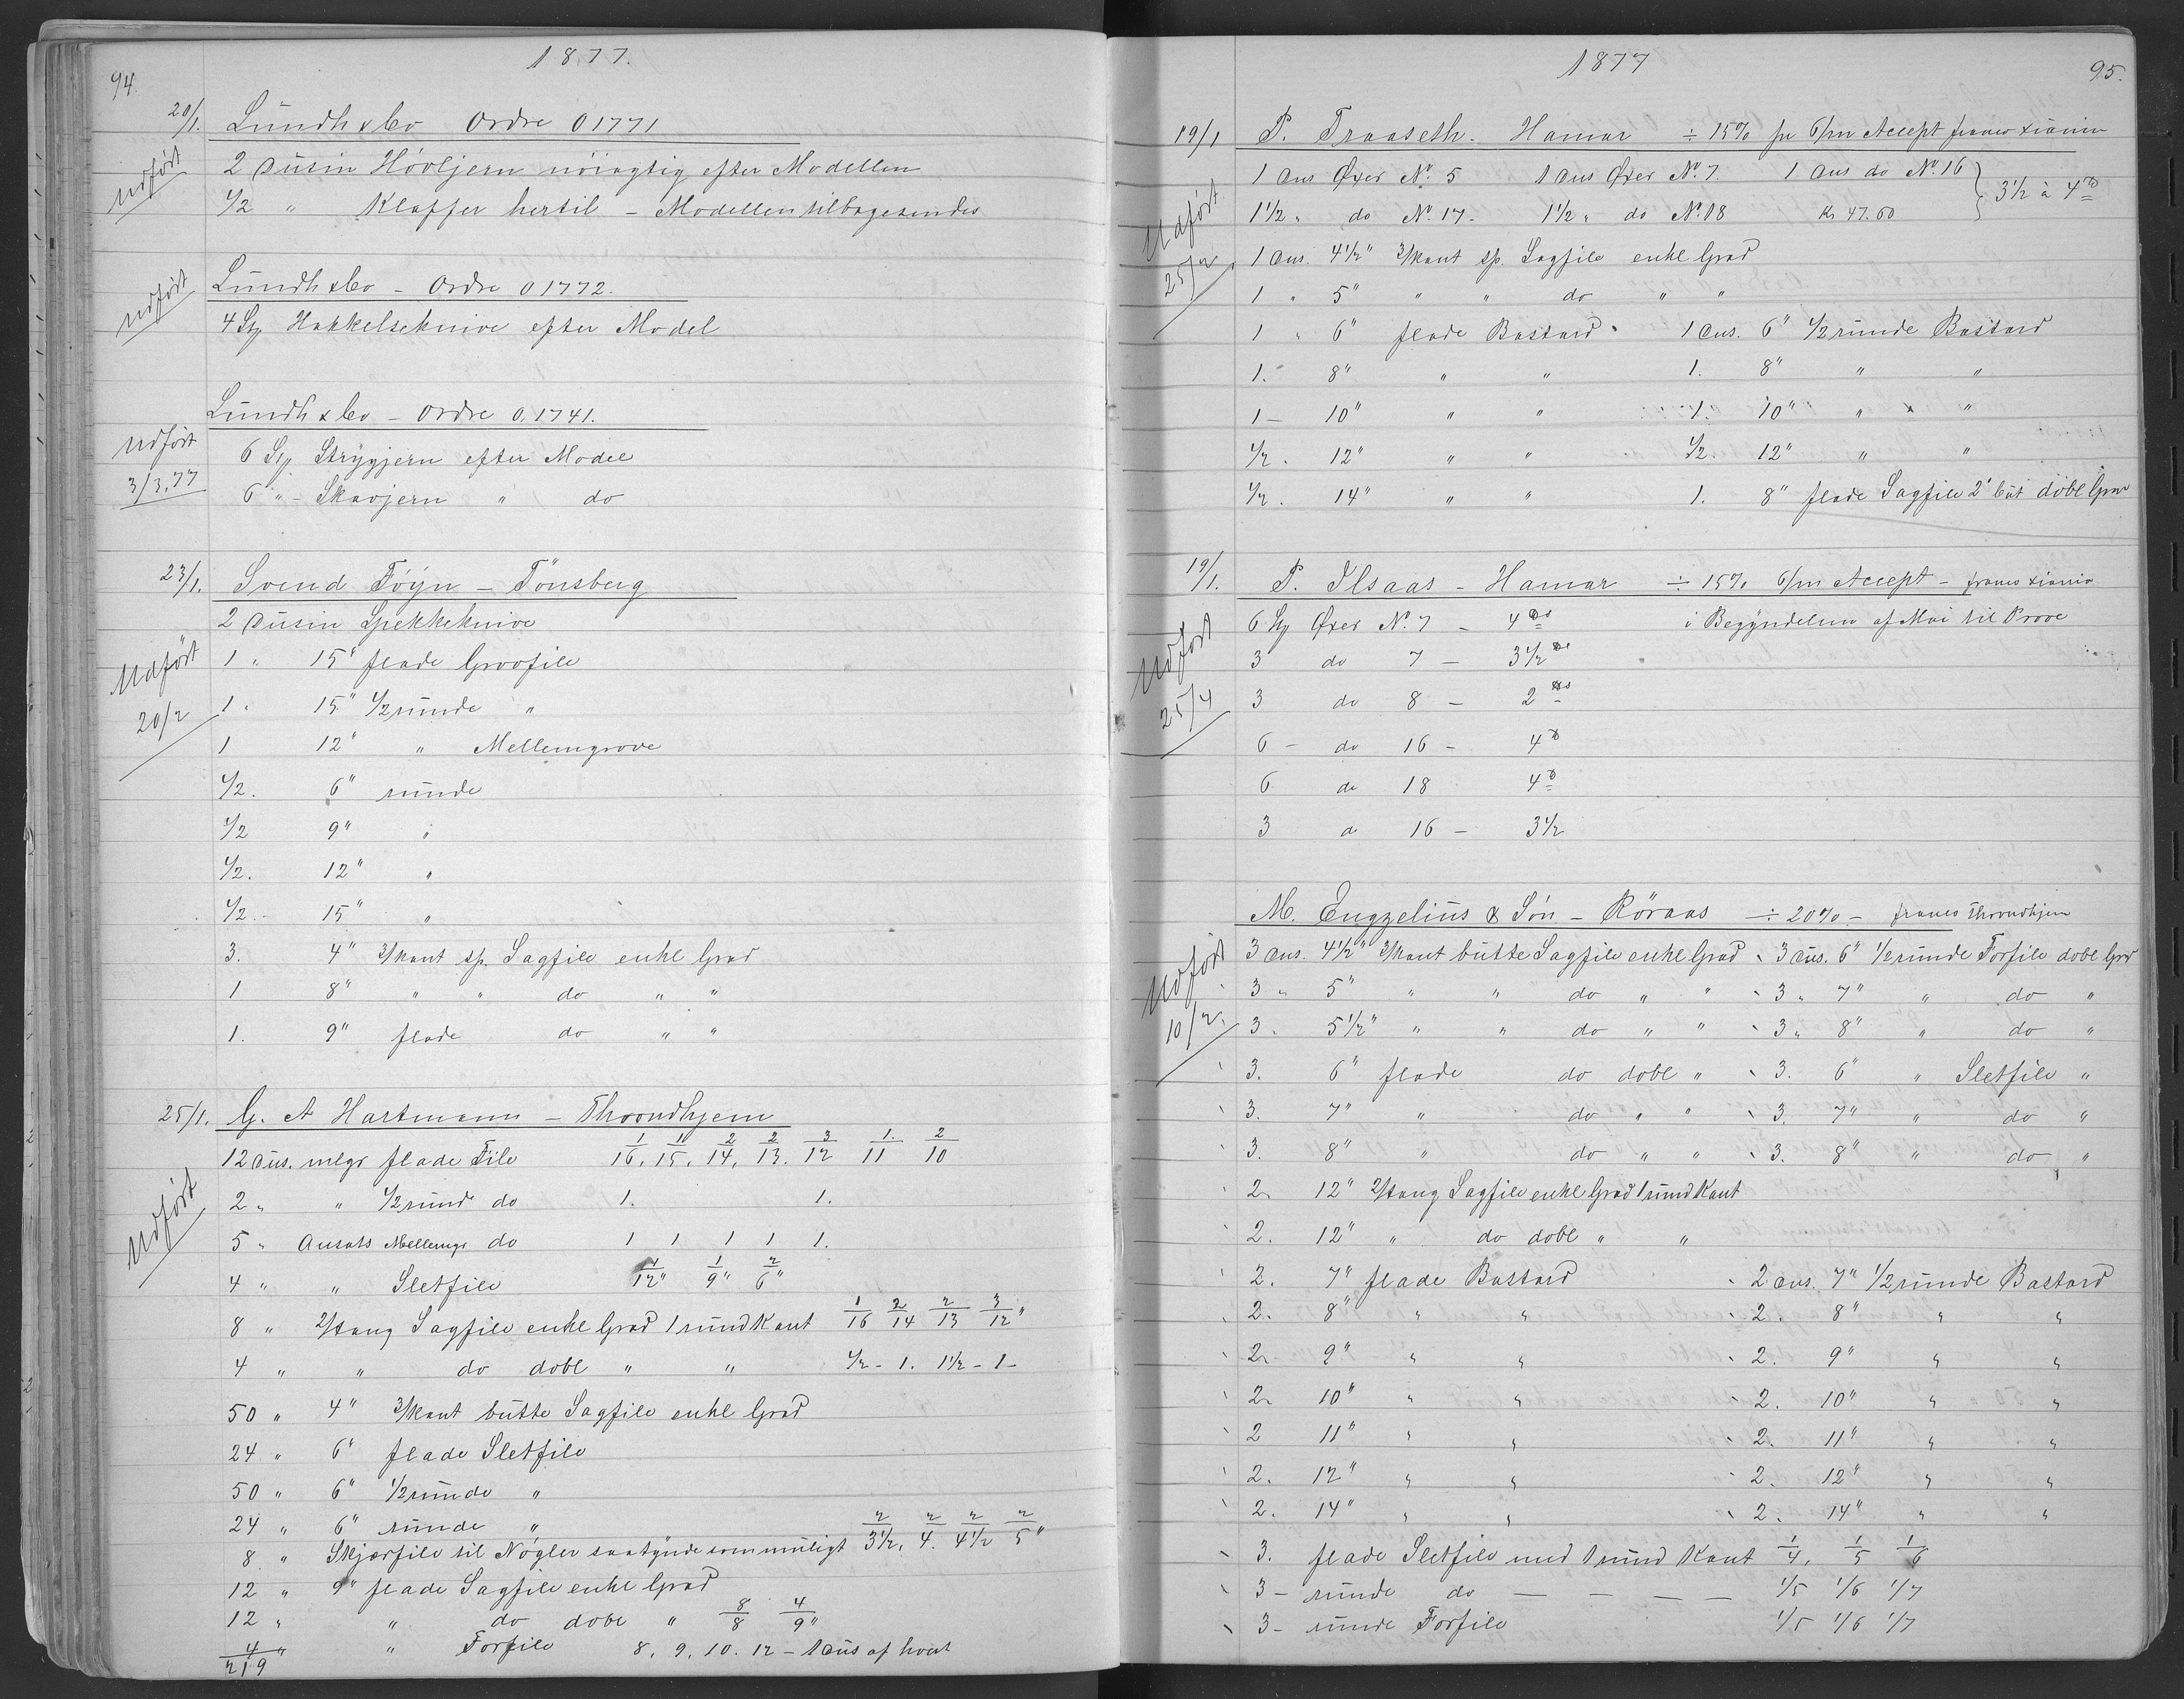 94.
1877.
20/1. Lundh & Co Ordre 01771
Udført
2 Dusin Høvljern nøiagtig efter Modellen
1/2 " Klaffer hertil - Modellen tilbagesendes
Lundh & Co - Ordre 01772.
Udført
4 Stk Hakkelseknive efter Model
Lundh & Co - Ordre 0.1741.
Udført 3/3.77
6 Stk Strygjern efter Model
6 " - Skavjern " do
23/1. Svend Föyn - Tönsberg
2 Dusin Spekkeknive
Udført 20/2
1 " 15" flade Grovfile
1 " 15" 1/2 runde "
1 12" " Mellemgrove
1/2. 6" runde
1/2 9" "
1/2. 12" "
1/2. - 15" "
3. 4" 3/kant sp. Sagfile enkl Grad
1 8" " " do " "
1. 9" flade do " "
25/1. G. A Hartmann - Throndhjem
12 dus. mlgr flade File 1/16, 1/15, 2/14, 2/13. 3/12 1/11 2/10
Udført
2 " " 1/2 rund do 1. 1.
5 " Ansats Mellemgr do 1 1 1 1 1.
4 " " Sletfile 1/12" 1/9" 2/6"
8 " 2/tang Sagfile enkl Grad 1 rund Kant 1/16 2/14 2/13 3/12"
4 " " do dobl " " 1/2 - 1. 1 1/2 - 1 -
50 " 4" 3/kant butte Sagfile enkl Grad
24 " 6" flade Sletfile
50 " 6" 1/2 runde "
24 " 6" runde "
8 " Skjærfile til Nøgler saa tynde som muligt 2/3 1/2, 2/4. 2/4 1/2 2/5"
12 " 9" flade Sagfile enkl Grad
12 " " do dobl " 8/8 4/9"
4 " " Forfile 8, 9, 10. 12 - 1 Dus af hvert
219
1877
95.
19/1 P. Traaseth. Hamar ÷ 15% pr 6/m Accept franco Xiania
1 Dus Øxer No. 5 1 Dus Øxer No. 7 1 Dus do No. 16 } 3 1/2 à 4
1 1/2 " do No. 17. 1 1/2 " do No. 18 Kr 47.60
Udført 25/2
1 Dus. 4 1/2" 3/kant sp. Sagfile enkl Grad
1 " 5" " " do " "
1 " 6" flade Bastard 1 Dus. 6" 1/2 runde Bastard
1. 8" " " 1. 8" " "
1 - 10" " " 1. 10" " "
1/2. 12" " " 1/2. 12" " "
1/2. 14" " " 1. 8" flade Sagfile 2' Cut dobl Grad
19/1. P. Ilsaas - Hamar ÷ 15% 6/m Accept - franco Xiania
Udført 25/4
6 Stk Øxer No. 7 - 4 i Begyndelsen af Mai til Prøve
3 do 7 - 3 1/2
3 do 8 - 2
6 - do 16 - 4
6 do 18 4
3 do 16 - 3 1/2
M. Engzelius & Søn - Röraas ÷ 20% - franco Throndhjem
Udført 10/2.
3 Dus. 4 1/2" 3/kant butte Sagfile enkl Grad 3 Dus. 6" 1/2 runde Forfile dobl Grd
3 " 5" " " do " " 3 " 7" " do "
3. 5 1/2" " " do " " 3 " 8" " do "
3. 6" flade do dobl " 3. 6" " Sletfile "
3. 7" " do " " 3. 7" " do "
3. 8" " do " " 3. 8" " do "
2 " 12" 2/tang Sagfile enkl Grad 1 rund Kant
2. 12" " do dobl " "
2. 7" flade Bastard 2 Dus. 7" 1/2 runde Bastard
2. 8" " " 2. 8" " "
2 " 9" " " 2. 9" " "
2 " 10" " " 2. 10" " "
2 11" " " 2. 11" " "
2. 12" " " 2. 12" " "
2. 14" " " 2. 14" " "
3. flade Sletfile med 1 rund Kant 1/4, 1/5 1/6
3 - runde do - - - - 1/5 1/6 1/7
3 - runde Forfile 1/5 1/6 1/7